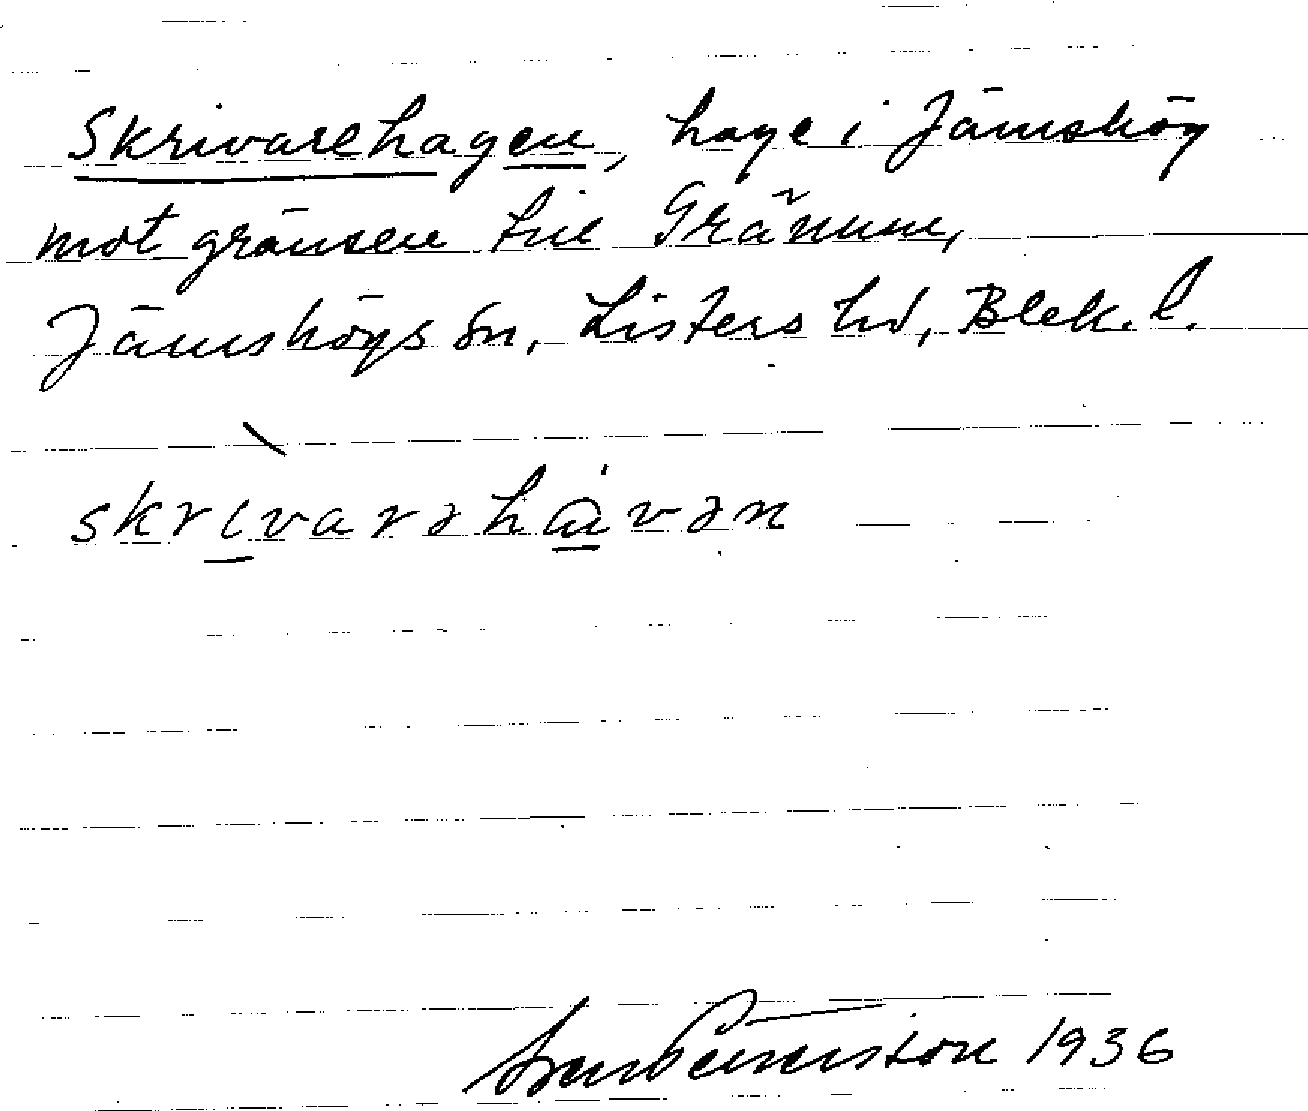 Skrivarehagen, hage i Jämshög
mot gränsen till Gränum,
Jämshögs sn, Listers hd, Blek. l.
skrivarəhavən
1936